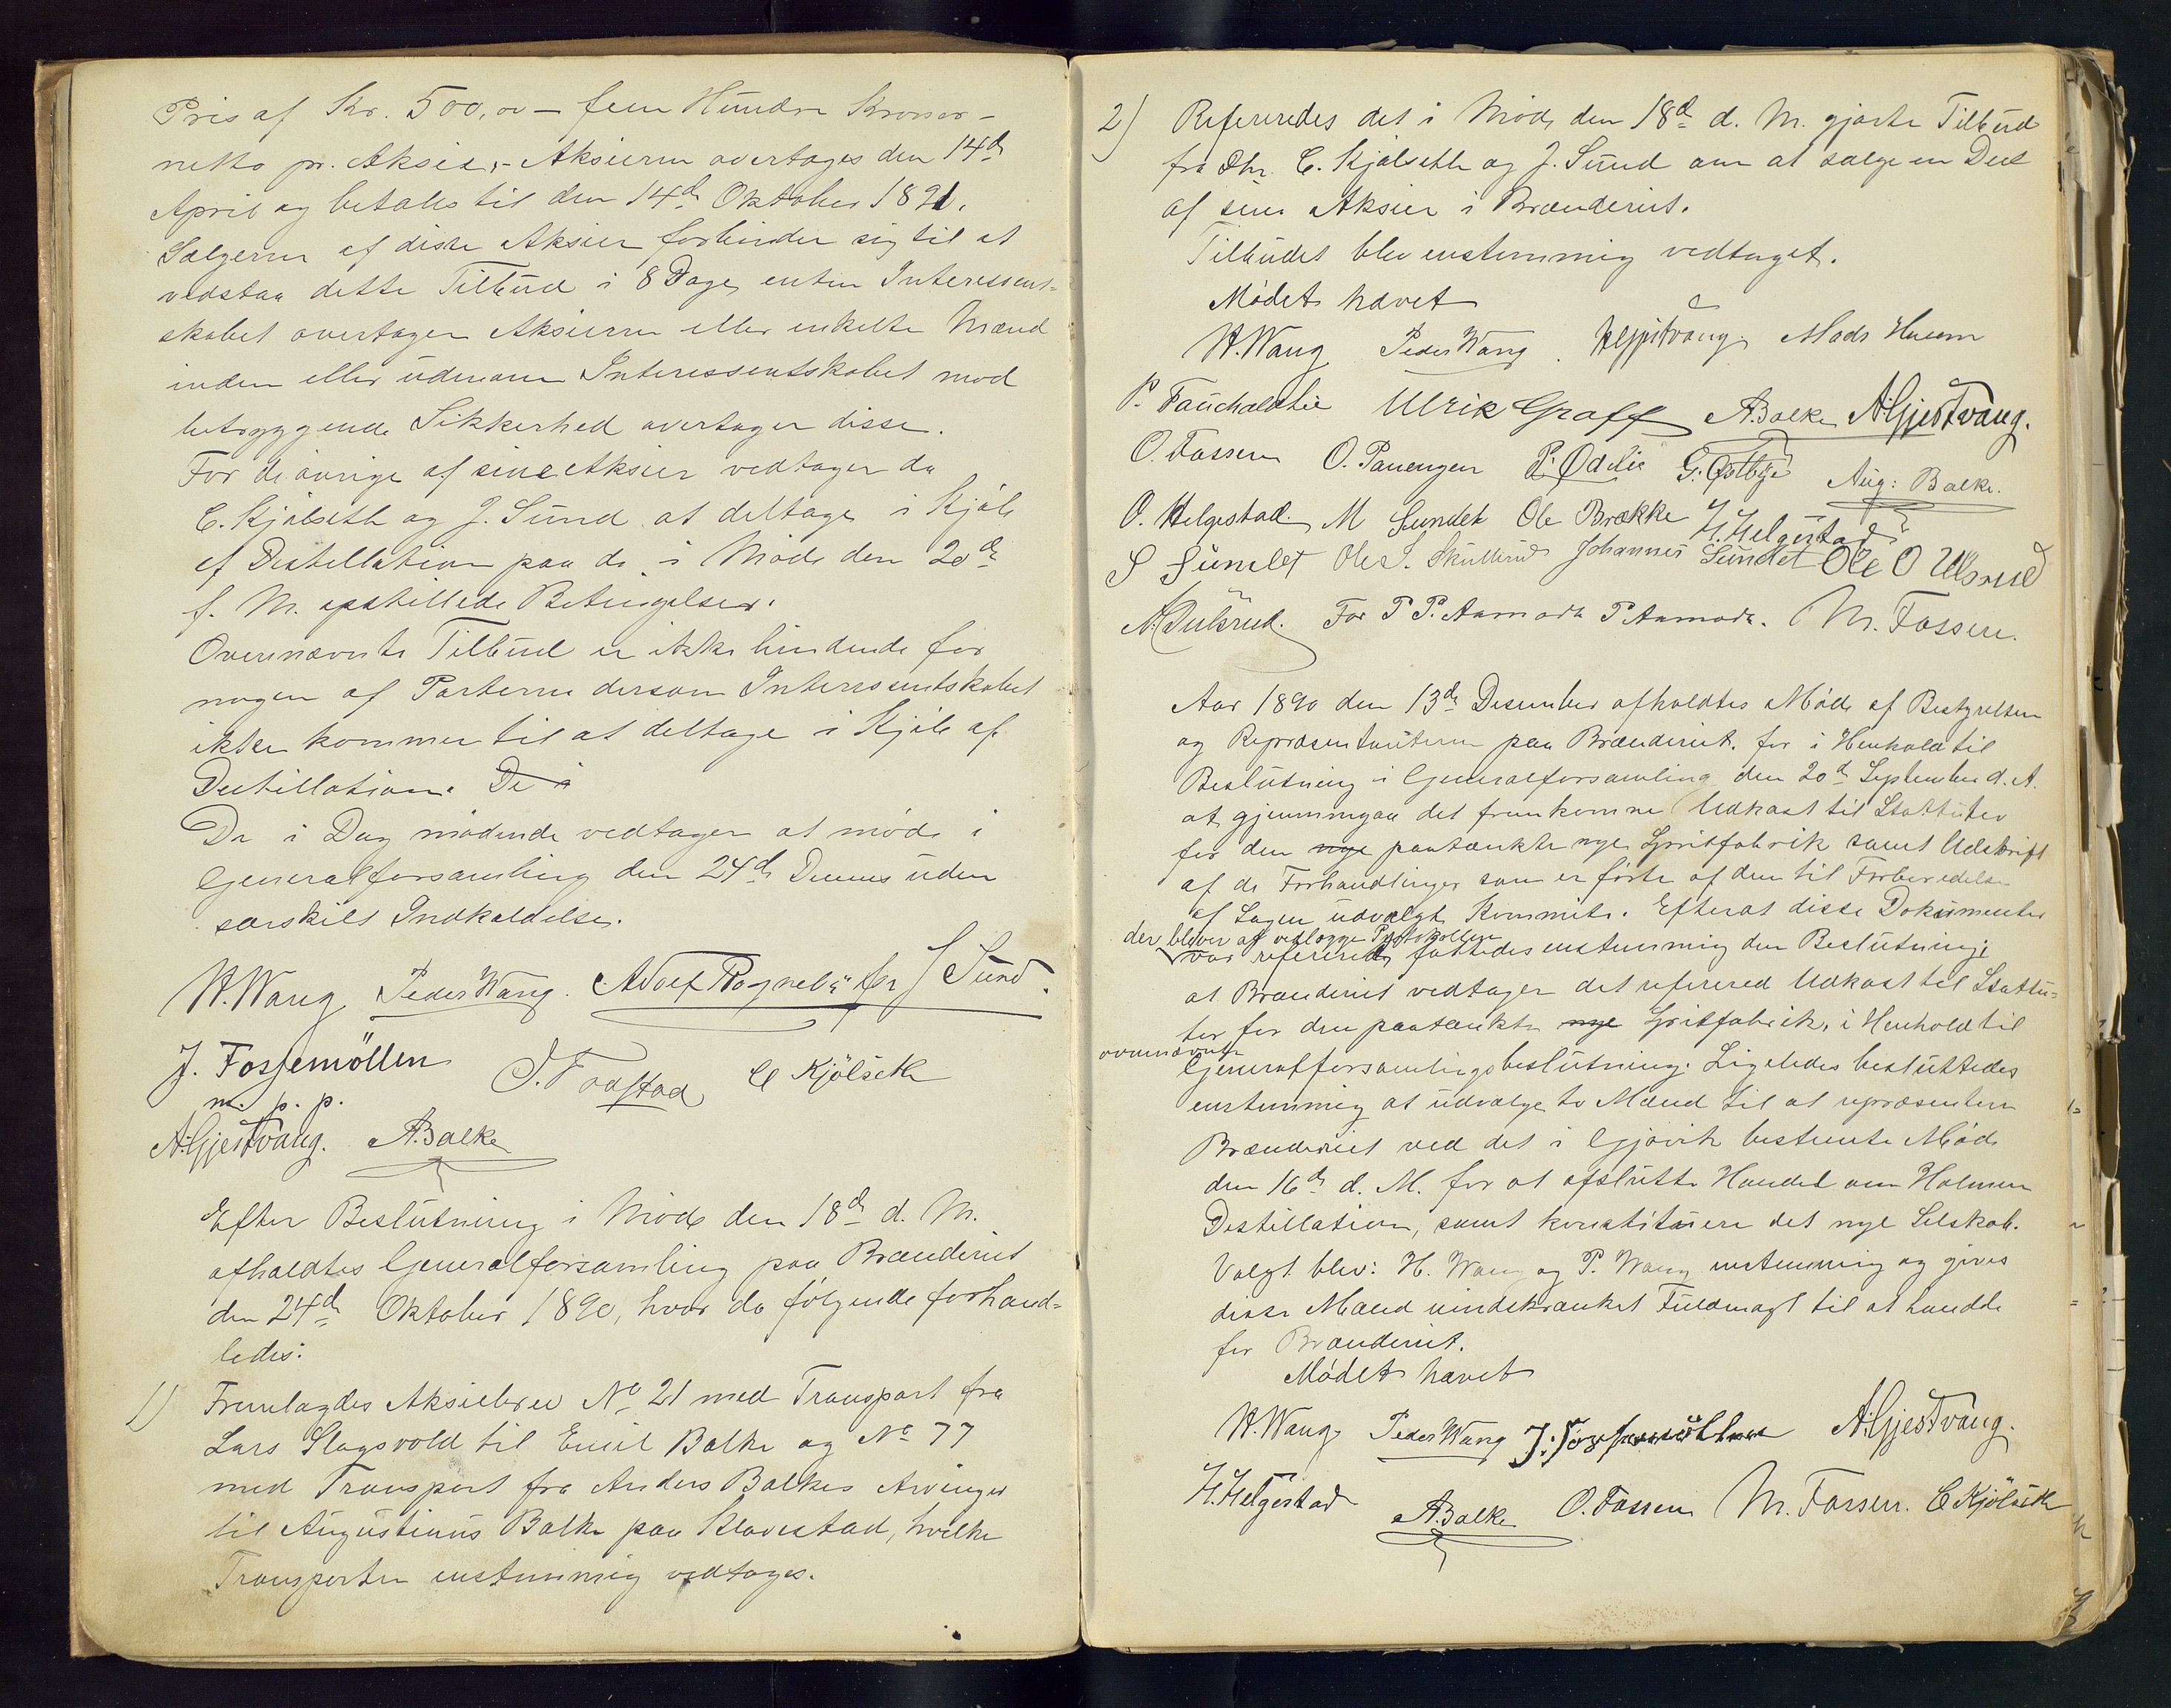 Pris af Kr. 500,00 – fem Hundre Kroner –
netto pr. Aksie, – Aksierne overtages den 14de
April og betales til den 14de Oktober 1891.
Sælgerne af disse Aksier forbinder sig til at
vedstaa dette Tilbud i 8 Dage, enten Interessent-
skabet overtager Aksierne eller enkelte Mænd
inden eller udenom Interessentskabet mod
betryggende Sikkerhed overtager disse.
For de øvrige af sine Aksier vedtager da
C. Kjølseth og J. Sund at deltage i Kjøb
af Destillation paa de i Møde den 20de
f. M. opstillede Betingelser.
Ovennævnte Tilbud er ikke bindende for
nogen af Parterne dersom Interessentskabet
ikke kommer til at deltage i Kjøb af
Destillation. De i
De i Dag mødende vedtager at møde i
Generalforsamling den 24de Dennes uden
særskilt Indkaldelse.
H. Wang Peder Wang. Adolf Rognebÿ for J Sund.
J. Fossemöllen O. Fodstad C Kjölseth
m. p. p.
A. Gjestvang. A. Balke
Efter Beslutning i Møde den 18de d. M.
afholdtes Generalforsamling paa Brænderiet
den 24de Oktober 1890, hvor da følgende forhand-
ledes:
1) Fremlagdes Aksiebrev No 21 med Transport fra
Lars Slagsvold til Emil Balke og No 77
med Transport fra Anders Balkes Arvinger
til Augustinus Balke paa Klavestad, hvilke
Transporter enstemmig vedtages.
2) Refereredes det i Møde den 18de d. M. gjorte Tilbud
fra Dhr. C. Kjølseth og J. Sund om at sælge en Deel
af sine Aksier i Brænderiet.
Tilbudet blev enstemmig vedtaget.
Mødet hævet
H. Wang Peder Wang. Mads
P. Fauchaldlie Ulrik Graff A. Balke A. Gjestvang.
O. Fossen O. Panengen P. Ødelie G. Østbye Aug: Balke.
O. Helgestad M Sundet Ole Brække H. Helgestad
S Sundet Ole S. Skullerud Johannes Sundet Ole O Ullsrud
N. Dulsrud. For P P. Aamodt P Aamodt. M. Fossen.
Aar 1890 den 13de Desember afholdtes Møde af Bestyrelsen
og Repræsentanterne paa Brænderiet, for i Henhold til
Beslutning i Generalforsamling den 20de September d. A.
at gjennemgaa det fremkomne Udkast til Stattuter
for den nye paatænkte nye Spritfabrik samt Udskrift
af de Forhandlinger som er ført af den til Forberedelse
af Sagen udvalgte Kommite. Efterat disse Dokumenter
der bliver at vedlægge Protokollen
var refereret fattedes enstemmig den Beslutning:
at Brænderiet vedtager det refererede Udkast til Stattu-
ter for den paatænkte nye Spritfabrik, i Henhold til
ovennævnte
Generalforsamlingsbeslutning. Ligeledes besluttedes
enstemmig at udvælge to Mænd til at repræsentere
Brænderiet ved det i Gjøvik bestemte Møde
den 16de d. M. for at afslutte Handel om Holmen
Destillation, samt konstituere det nye Selskab.
Valgt blev: H. Wang og P. Wang enstemmig og gives
disse Mænd uindskrænket Fuldmagt til at handle
for Brænderiet.
Mødet hævet
H. Wang Peder Wang J. Fossemöllen A. Gjestvang.
H. Helgestad A. Balke O. Fossen M. Fossen. C Kjölseth